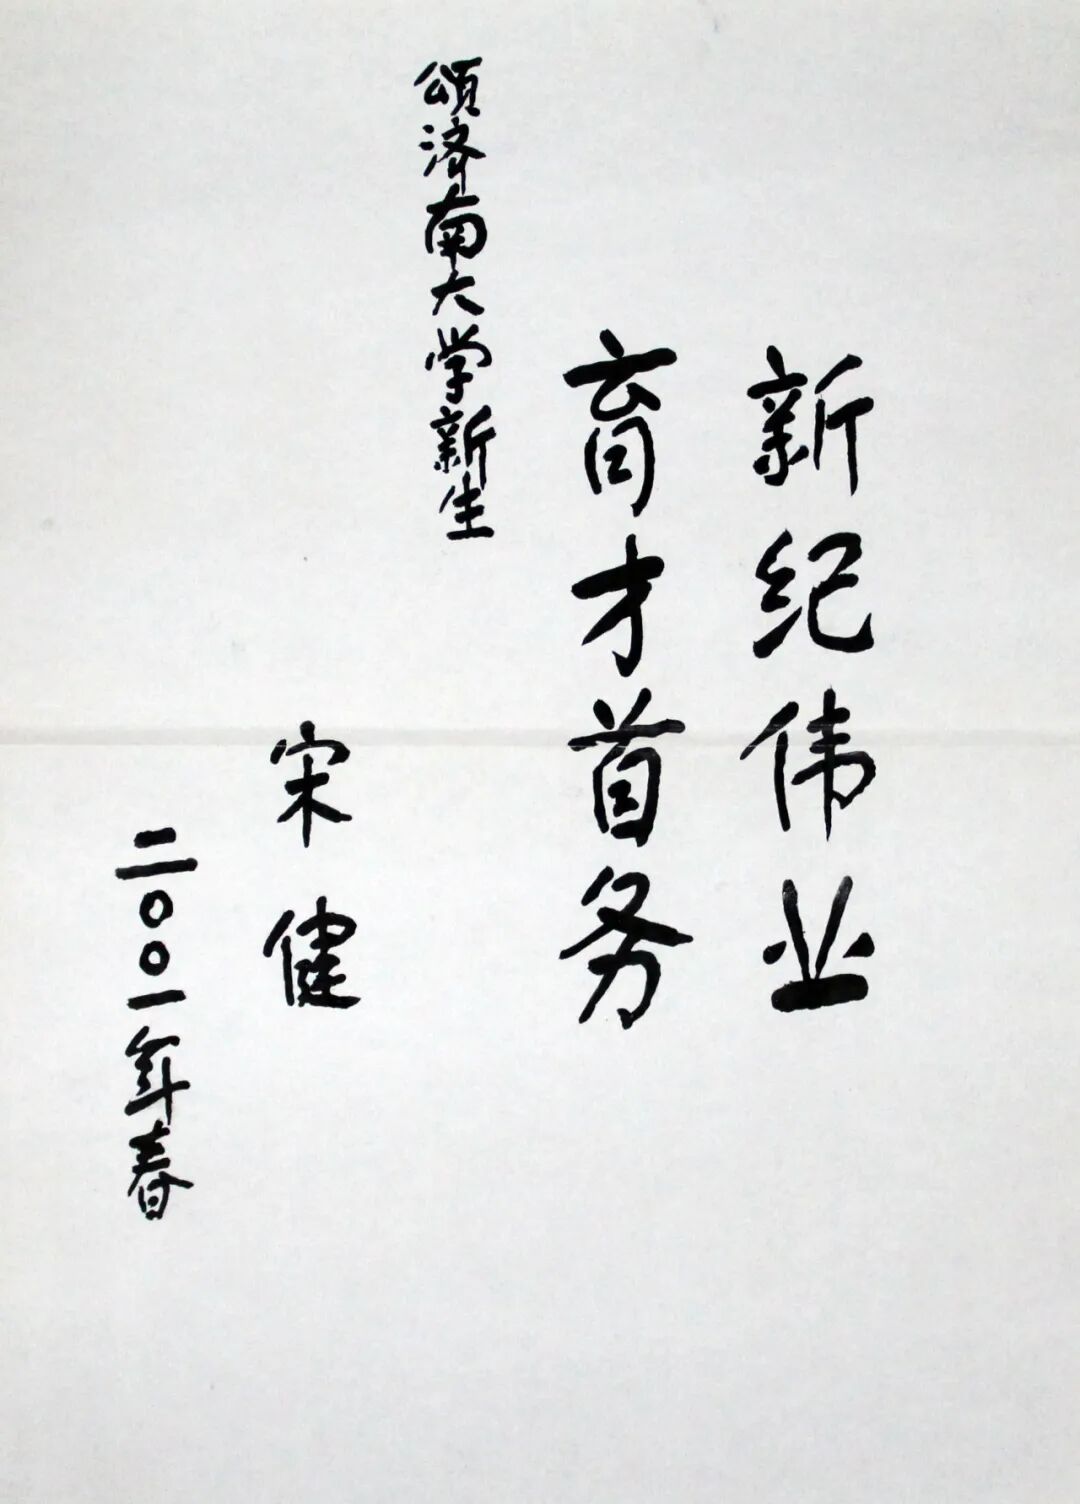 新纪伟业
育才首务
颂济南大学新生
宋健
二〇〇一年春